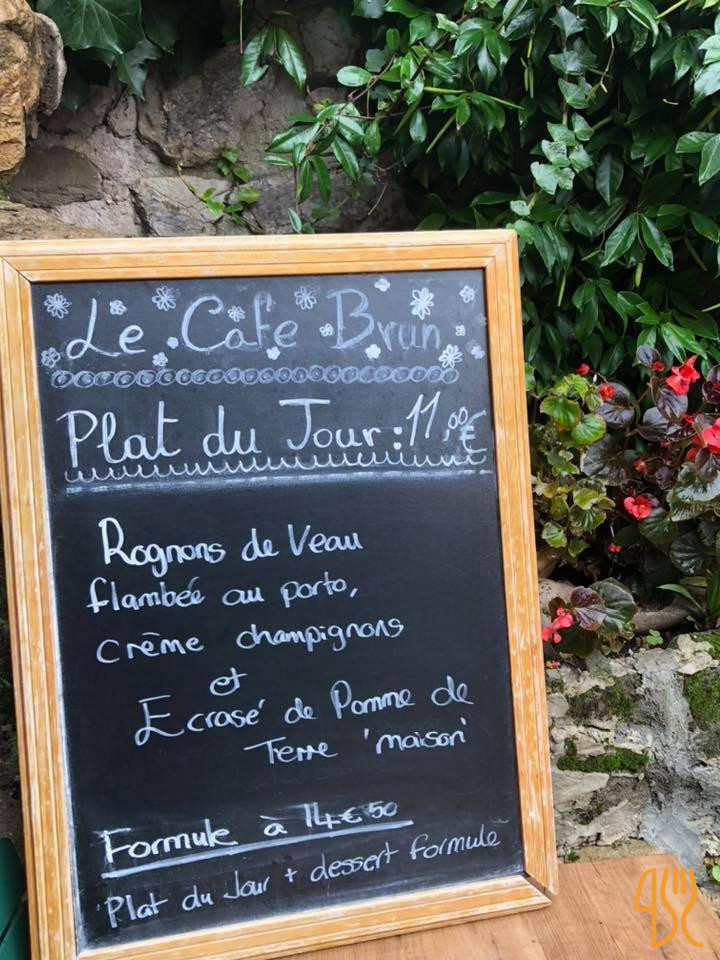 Le Cafe Brun
Plat du Jour : 11,00€
Rognons de Veau
flambée au porto,
crème champignons
et
Ecrasé de Pomme de
Terre 'maison'
Formule à 14€50
Plat du Jour + dessert formule